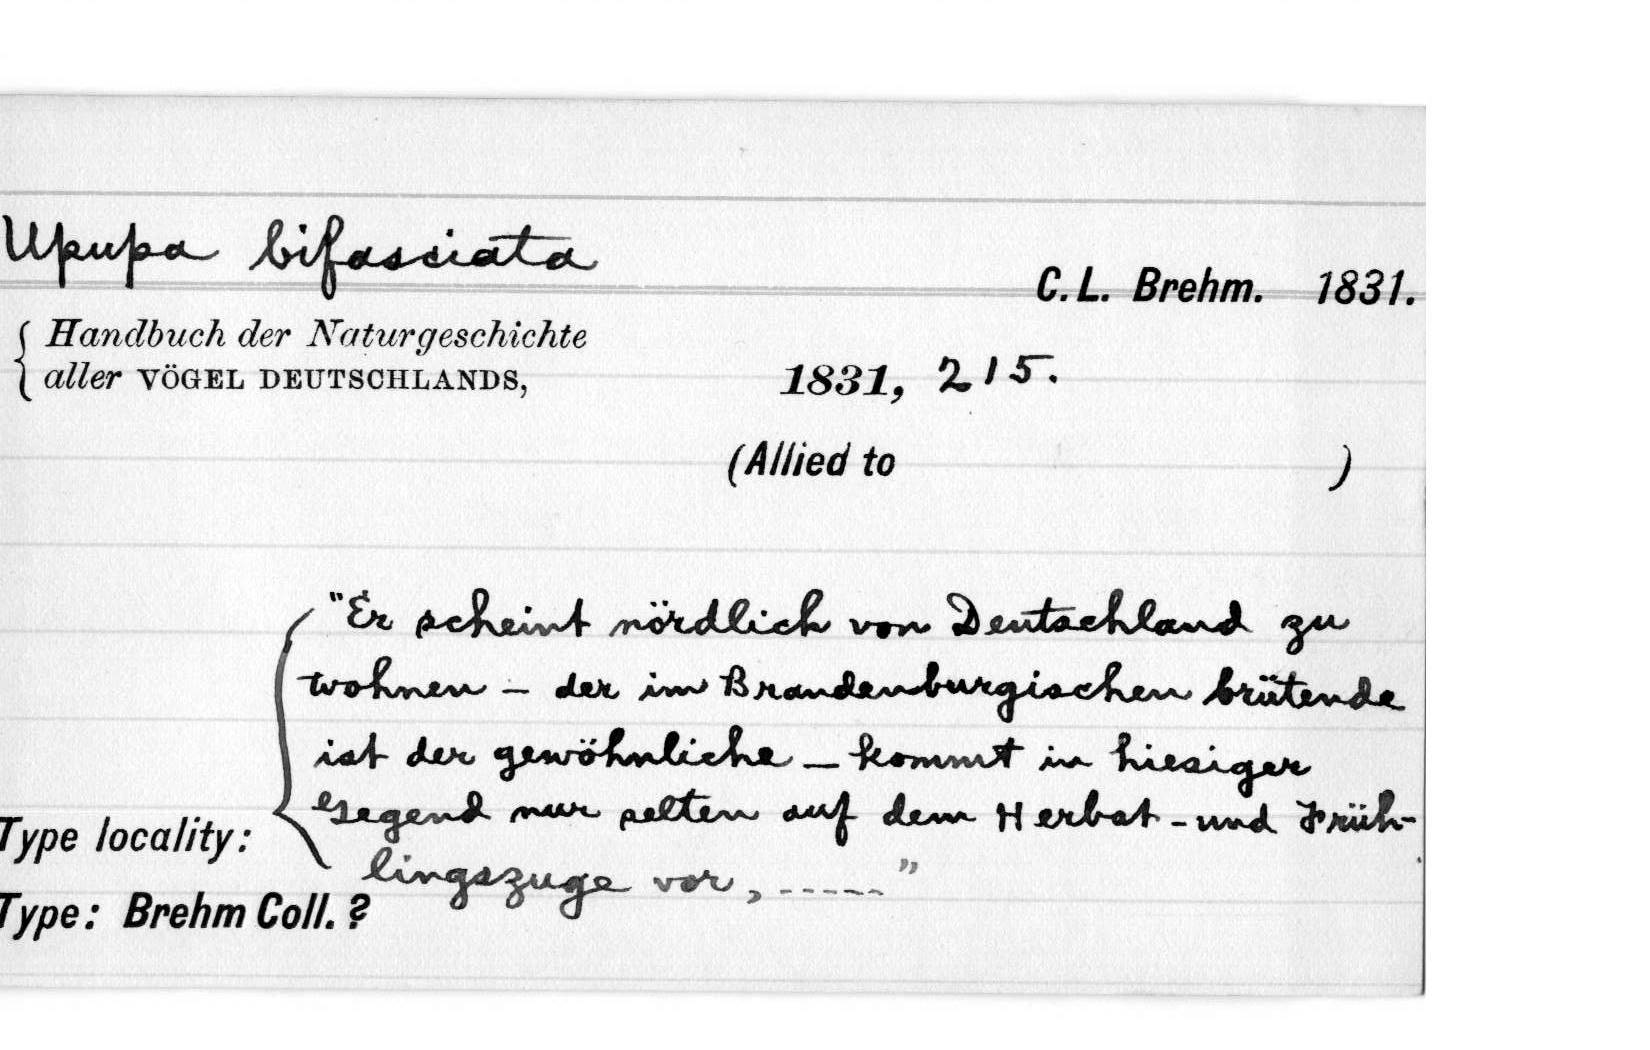 Upupa bifasciata
C. L. Brehm. 1831.
Handbuch der Naturgeschichte
aller VÖGEL DEUTSCHLANDS,
1831, 215.
(Allied to )
"Er scheint nördlich von Deutschland zu
wohnen – der im Brandenburgischen brütende
ist der gewöhnliche – kommt in hiesiger
Gegend nur selten auf dem Herbst- und Früh-
Type locality:
lingszuge vor, -----"
Type: Brehm Coll. ?